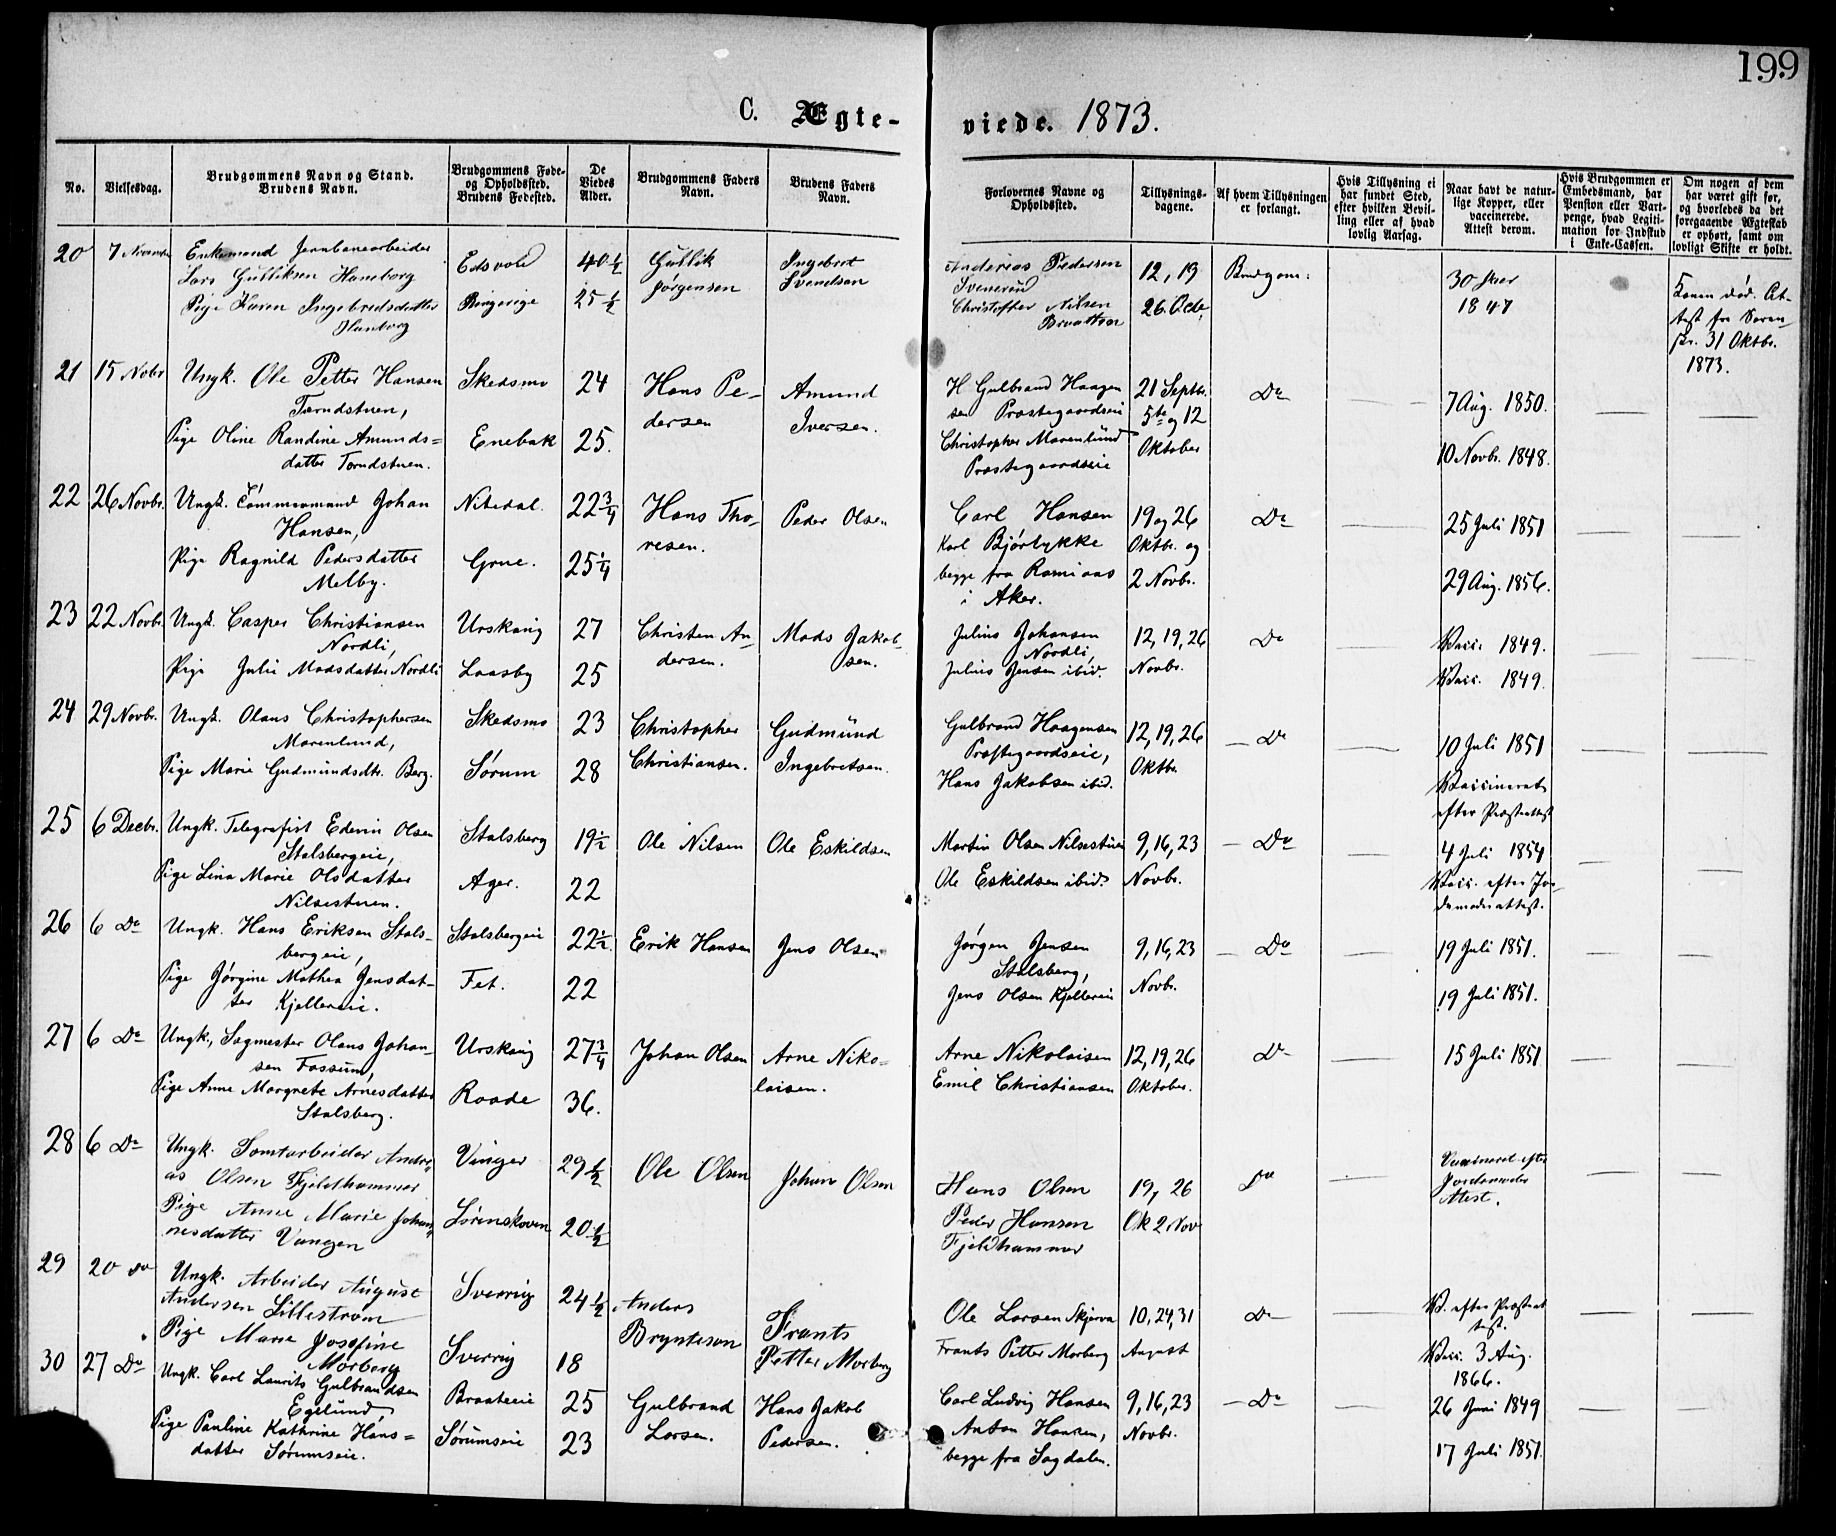 199
C. Ægte-
viede. 1873.
No.
Vielsesdag.
Brudgommens Navn og Stand.
Brudens Navn.
Brudgommens Føde-
og Opholdssted.
Brudens Fødested.
De
Viedes
Alder.
Brudgommens Faders
Navn.
Brudens Faders
Navn.
Forlovernes Navne og
Opholdssted.
Tillysnings-
dagene.
Af hvem Tillysningen
er forlangt.
Hvis Tillysning ei
har fundet Sted,
efter hvilken Bevil-
ling eller af hvad
lovlig Aarsag.
Naar havt de natur-
lige Kopper, eller
vaccinerede.
Attest derom.
Hvis Brudgommen er
Embedsmand, har
Pension eller Vart-
penge, hvad Legiti-
mation for Indskud
i Enke-Cassen.
Om nogen af dem
har været gift før,
og hvorledes da det
foregaaende Ægteskab
er ophørt, samt om
lovligt Skifte er holdt.
20 7 November Enkemand Jernbanearbeider
Lars Gulliksen Haneborg
Pige Karen Ingebredsdatter
Haneborg
Edsvold 40½
Ringerige 25½
Gullik
Jørgensen
Ingebret
Svendsen
Andreas Pedersen
Svenerud
Christoffer Nilsen
Braatten
12, 19
26. Octbr.
Brudgom:
30 Juer
1847
Konen død. At-
test fra Soren-
skr. 31 Oktbr.
1873.
21 15 Nobr Ungk. Ole Petter Hansen
Tærudstuen,
Pige Oline Randine Amunds=
datter Torudstuen.
Skedsmo 24
Enebak 25.
Hans Pe-
dersen
Amund
Iversen.
H Gulbrand Haagen
sen Præstegaardseie
Christopher Marenlund
Præstegaardseie
21 Septbr.
5te og 12
Oktober
Do
7 Aug. 1850.
10 Novbr. 1848.
22 26 Novbr. Ungk. Tømmermand Johan
Hansen,
Pige Ragnild Pedersdatter
Melby.
Nitedal. 22¾
Grue. 25¼
Hans Tho-
resen.
Peder Olsen
Carl Hansen
Karl Bjørlykke
begge fra
i Aker.
19 og 26
Oktbr. og
2 Novbr.
Do
25 Juli 1851
29 Aug. 1856.
23 22 Novbr. Ungk. Casper Christiansen
Nordli,
Pige Julie Madsdatter Nordli
Urskoug 27
Laasby 25
Christen An-
dersen.
Mads Jakob-
sen.
Julius Johansen
Nordli,
Julius Jensen ibid.
12, 19, 26
Novbr.
Do
Vacc. 1849.
Vacc. 1849.
24 29 Novbr. Ungk. Olaus Christophersen
Marenlund,
Pige Marie Gudmundsdtr. Berg.
Skedsmo 23
Sørum 28
Christopher
Christiansen.
Gudmund
Ingebretsen.
Gulbrand Haagensen
Præstegaardseie,
Hans Jakobsen ibid.
12, 19, 26
Oktbr.
Do
10 Juli 1851
Vaccineret
efter Præsteattest
25 6 Decbr. Ungk. Telegrafist Edevin Olsen
Stalsbergeie,
Pige Lina Marie Olsdatter
Nilsestuen.
Stalsberg 19½
Ager. 22
Ole Nilsen
Ole Eskildsen
Martin Olsen Nilsestuen
Ole Eskildsen ibid.
9, 16, 23
Novbr.
Do
4 Juli 1854
Vacc. efter Jor-
demoderattest.
26 6 Do Ungk. Hans Eriksen Stals-
bergeie,
Pige Jørgine Mathea Jensdat-
ter Kjellereie.
Stalsbergeie 22½
Fet. 22
Erik Hansen
Jens Olsen
Jørgen Jensen
Stalsberg,
Jens Olsen Kjellereie
9, 16, 23
Novbr.
Do
19 Juli 1851.
19 Juli 1851.
27 6 Do Ungk., Sagmester Olaus Johan-
sen Fossum,
Pige Anne Margrete Arnesdatter
Stalsberg.
Urskoug 27¾
Raade 36.
Johan Olsen
Arne Niko-
laisen.
Arne Nikolaisen
Emil Christiansen
12, 19, 26
Oktober.
Do
15 Juli 1851
28 6 Do Ungk. Tomtarbeider Andre-
as Olsen Fjeldhammer
Pige Anne Marie Johan-
nesdatter Vangen
Vinger 29½
Lørenskoven 20½
Ole Olsen
Johan Olsen
Hans Olsen
Peder Hansen
Fjeldhammer
19, 26
Ok 2 Nov
Do
Vaccineret efter
Jordemoder
Attest.
29 20 do Ungk. Arbeider August
Andersen Lillestrøm
Pige Marie Josefine
Morberg
Sverrig 24½
Sverrig 18
Anders
Brynteson
Frants
Petter Morberg
Ole Larsen Skjerva
Frants Petter Morberg
10, 24, 31
August
Do
V. efter Præsteat
test.
Vacc. 3 Aug.
1866.
30 27 Do Ungk. Carl Laurits Gulbrandsen
Egelund,
Pige Pauline Kathrine Hans=
datter Sørumseie.
Braateeie 25
Sørumseie 23
Gulbrand
Larsen.
Hans Jakob
Pedersen.
Carl Ludvig Hansen
Anton Hansen,
begge fra Sagdalen.
9, 16, 23
Novbr.
Do
26 Juni 1849
17 Juli 1851